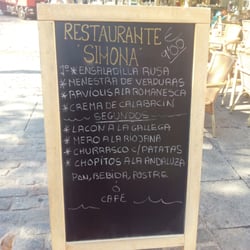 RESTAURANTE
"SIMONA"
1º * ENSALADILLA RUSA
* MENESTRA DE VERDURAS
* RAVIOLIS A LA ROMANESCA
* CREMA DE CALABACIN
SEGUNDOS
* LACON A LA GALLEGA
* MERO A LA RIOJANA
* CHURRASCO C/ PATATAS
* CHOPITOS A LA ANDALUZA
PAN, BEBIDA, POSTRE
Ó
CAFÉ